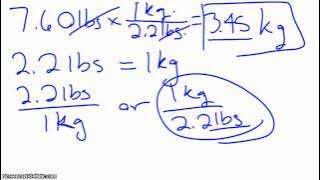 7.60lbs × 1kg/2.2lbs = 3.45 kg
2.2lbs = 1kg
2.2lbs/1kg or 1kg/2.2lbs